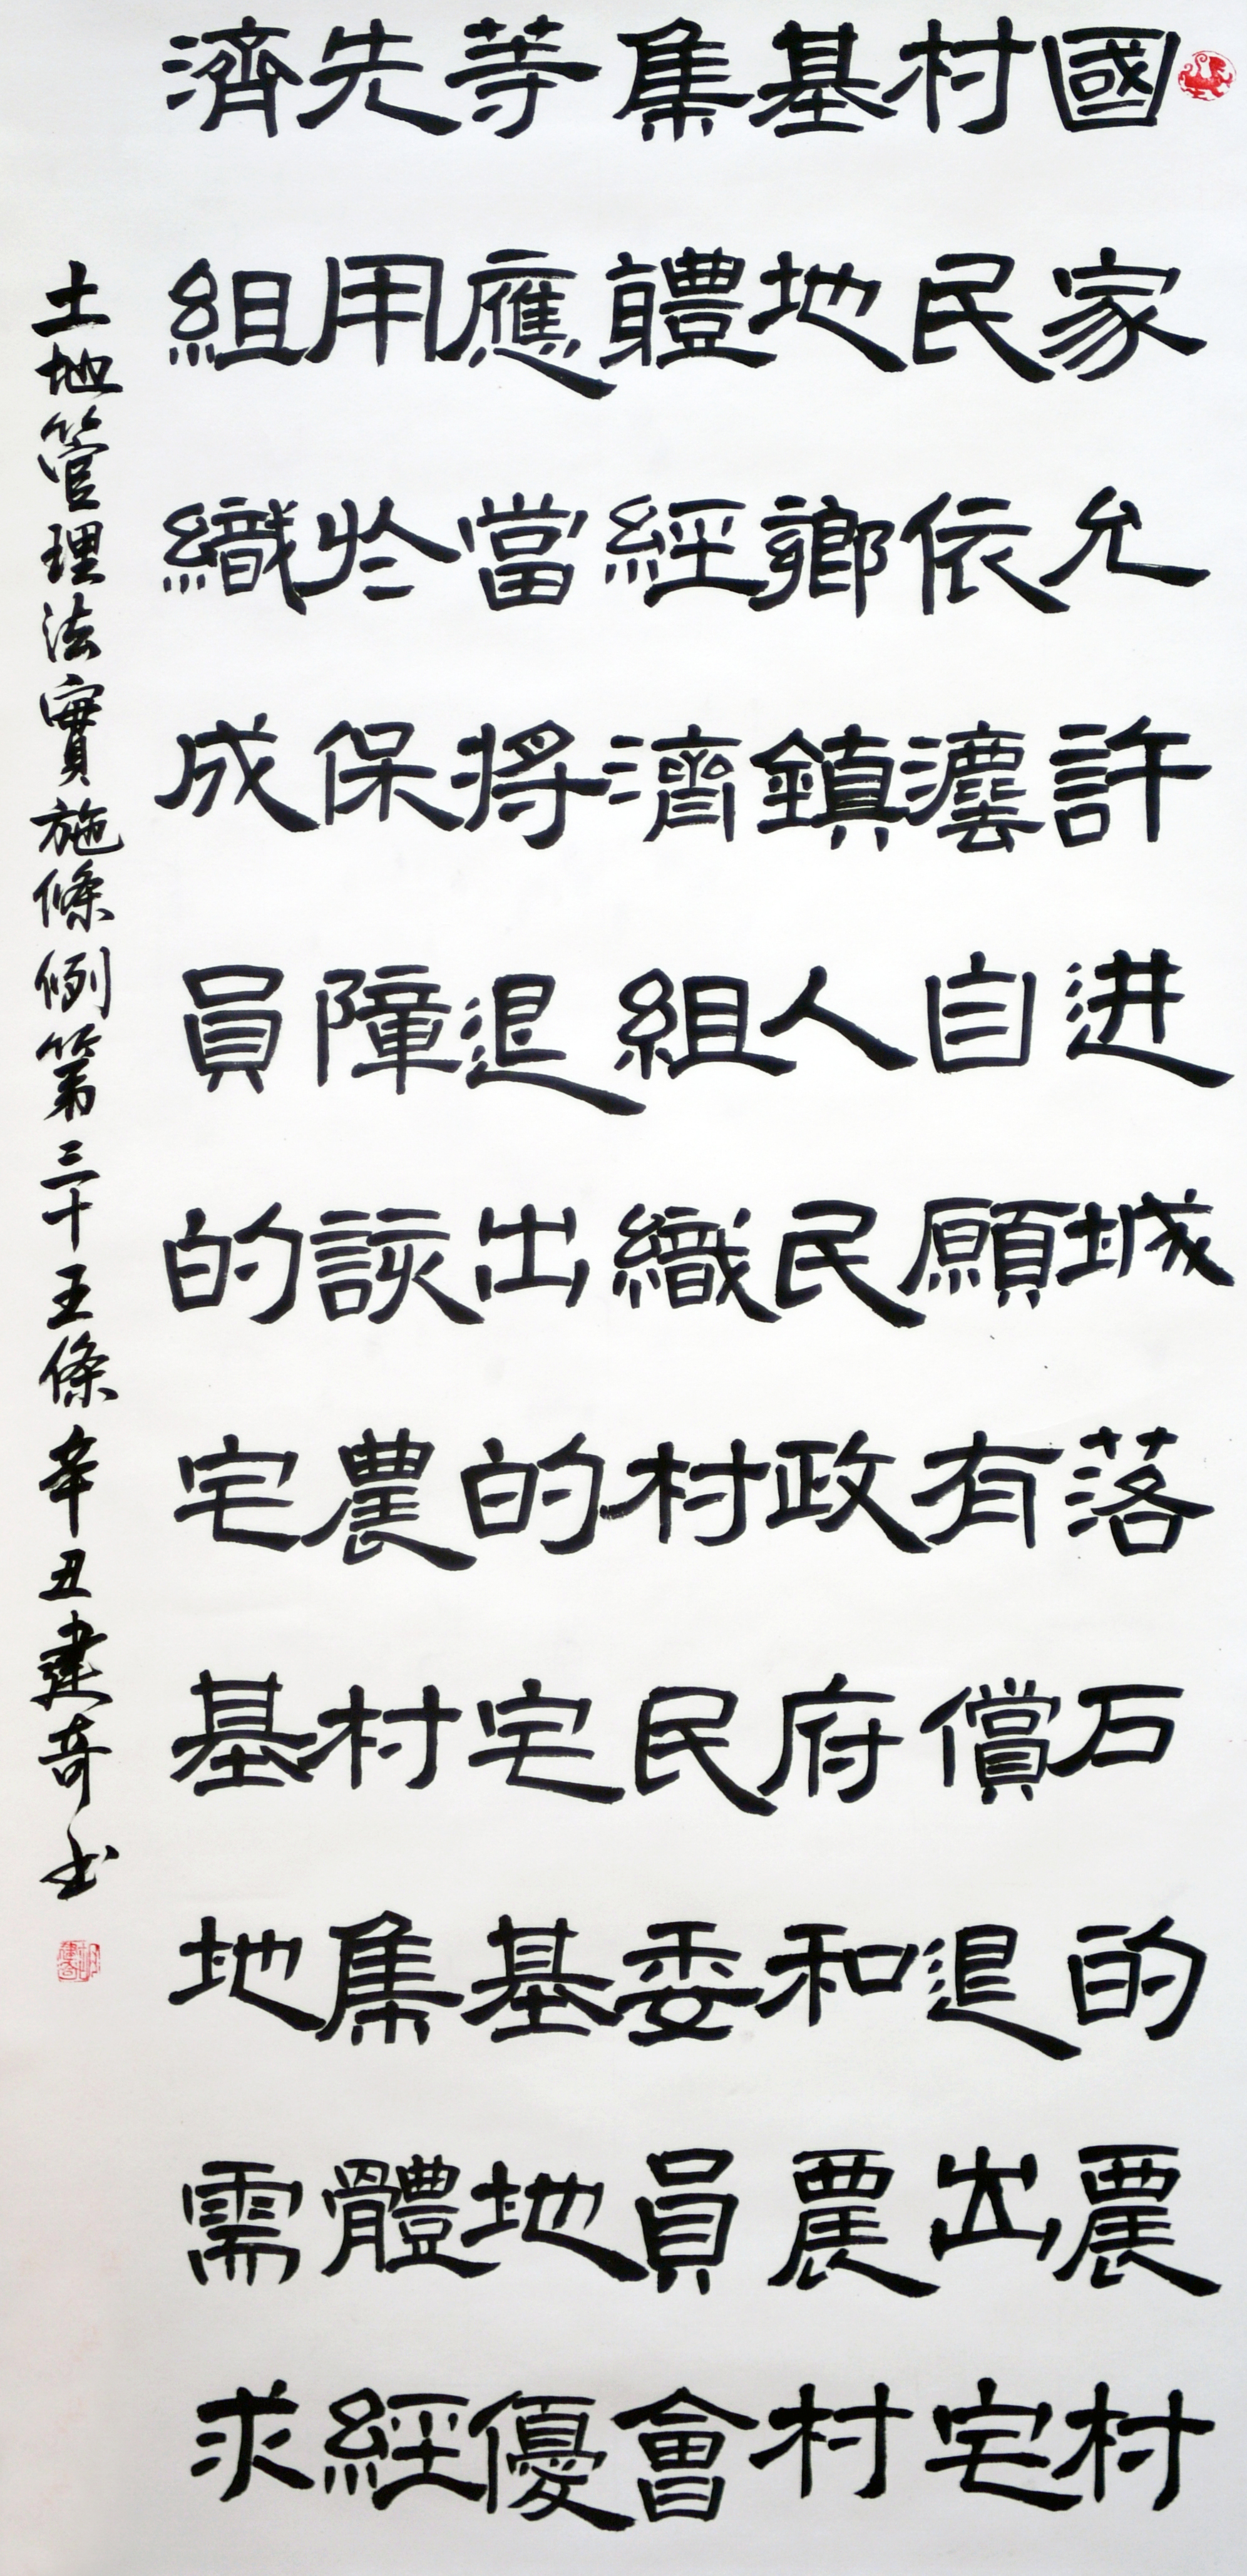 國家允許进城落石的農村
村民依灋自願有償退出宅
基地鄉鎮人民政府和農村
集體經濟組織村民委員會
等應當將退出的宅基地優
先用於保障該農村集體經
濟組織成員的宅基地需求
土地管理法實施條例第三十五條辛丑建奇书